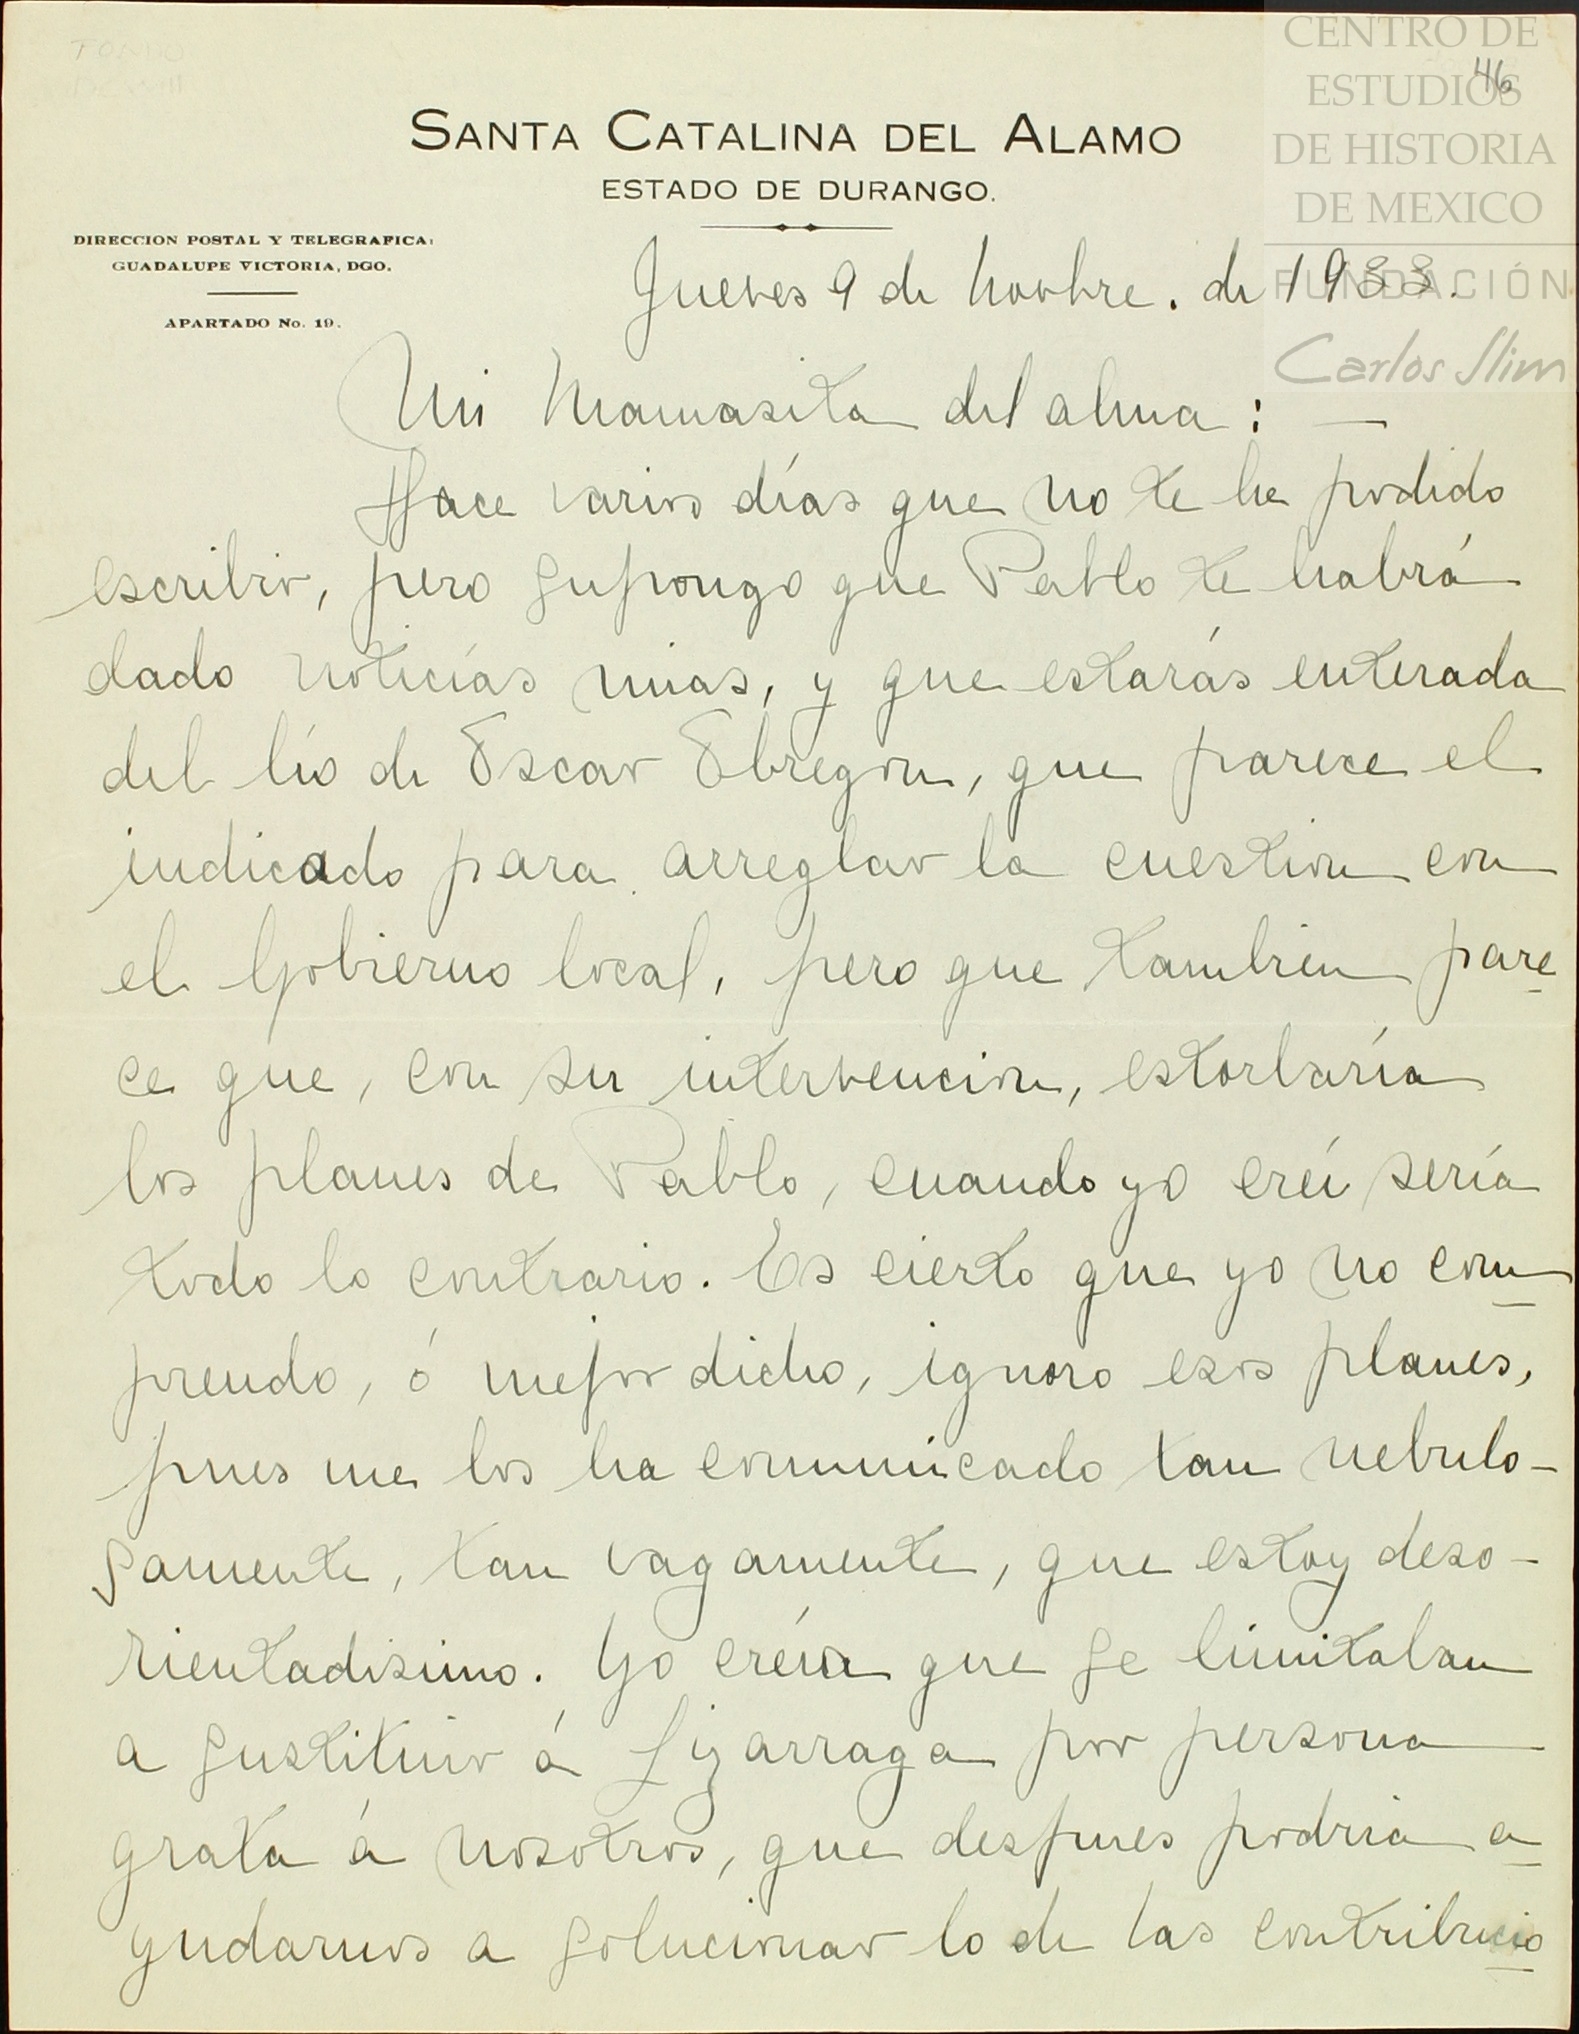 CENTRO DE
ESTUDIOS
DE HISTORIA
DE MEXICO
FUNDACIÓN
Carlos Slim
46
SANTA CATALINA DEL ALAMO
ESTADO DE DURANGO.
DIRECCION POSTAL Y TELEGRAFICA:
GUADALUPE VICTORIA, DGO.
APARTADO No. 19.
Jueves 9 de Novbre. de 1933.
Mi Mamasita del alma: —
Hace varios días que no te he podido
escribir, pero supongo que Pablo te habrá
dado noticías mias, y que estarás enterada
del lío de Oscar Obregon, que parece el
indicado para arreglar la cuestion con
el Gobierno local, pero que tambien pare
ce que, con su intervencion, estorbaría
los planes de Pablo, cuando yo creí sería
todo lo contrario. Es cierto que yo no com
prendo, ó mejor dicho, ignoro esos planes,
pues me los ha comunicado tan nebulo-
samente, tan vagamente, que estoy deso-
rientadisimo. Yo creía que se limitaban
a sustituir á Lizarraga por persona
grata á nosotros, que despues podria a
yudarnos a solucionar lo de las contribucio